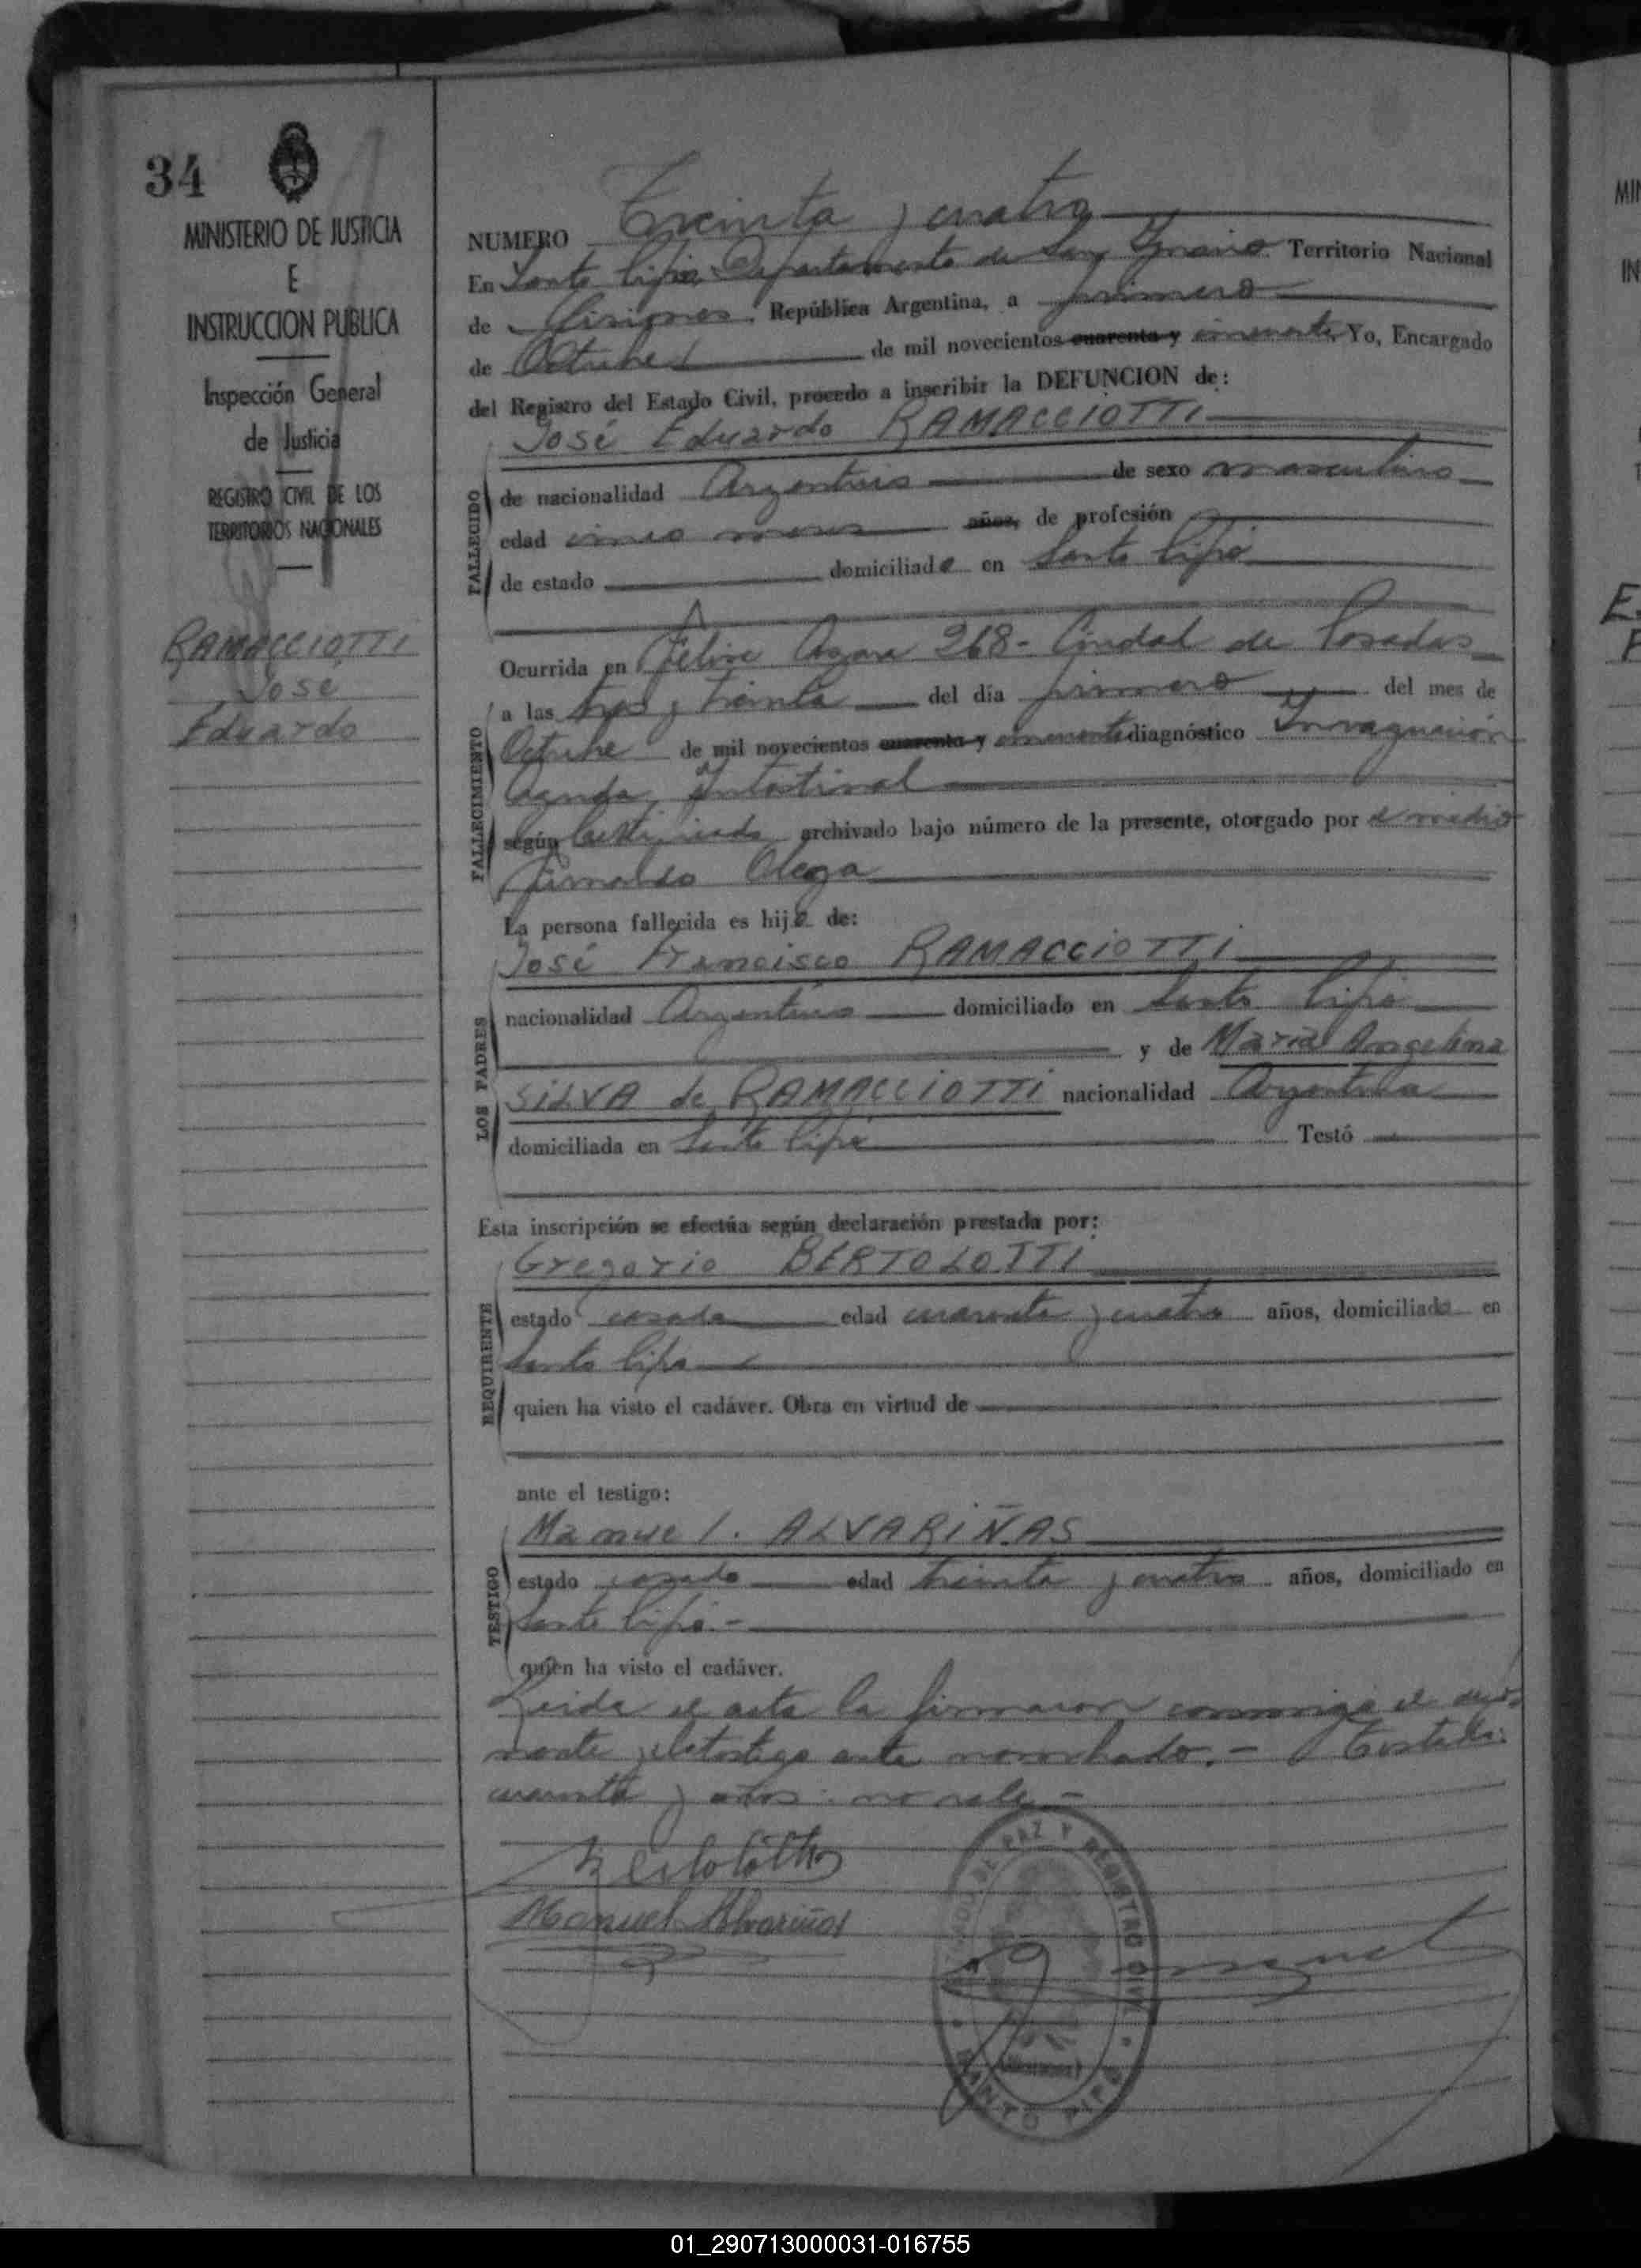 34
MINISTERIO DE JUSTICIA
E
INSTRUCCION PUBLICA
Inspección General
de Justicia
REGISTRO CIVIL DE LOS
TERRITORIOS NACIONALES
RAMACCIOTTI
José
Eduardo
NUMERO Treinta y cuatro
En Santo Pipó, Departamento de San Ignacio Territorio Nacional
de Misiones, República Argentina, a primero
de Octubre de mil novecientos cuarenta y cincuenta Yo, Encargado
del Registro del Estado Civil, procedo a inscribir la DEFUNCION de:
José Eduardo RAMACCIOTTI
FALLECIDO
de nacionalidad Argentino de sexo masculino
edad cinco meses años, de profesión
de estado domiciliado en Santo Pipó
FALLECIMIENTO
Ocurrida en Felix Azara 268 - Ciudad de Posadas
a las tres y treinta del día primero del mes de
Octubre de mil novecientos cuarenta y cincuenta diagnóstico Invaginación
Aguda Intestinal
según Certificado archivado bajo número de la presente, otorgado por el médico
La persona fallecida es hijo de:
LOS PADRES
José Francisco RAMACCIOTTI
nacionalidad Argentino domiciliado en Santo Pipó
y de María Angelina
SILVA de RAMACCIOTTI nacionalidad Argentina
domiciliada en Santo Pipó Testó
Esta inscripción se efectúa según declaración prestada por:
REQUIRENTE
Gregorio BERTOLOTTI
estado casado edad cuarenta y cuatro años, domiciliado en
Santo Pipó
quien ha visto el cadáver. Obra en virtud de
ante el testigo:
TESTIGO
Manuel. ALVARIÑAS
estado casado edad treinta y cuatro años, domiciliado en
Santo Pipó.-
quien ha visto el cadáver.
Leida el acta la firmaron conmigo el
y el testigo ante nombrado.- Testado:
cuarenta y años: no vale -
Bertolotti
Manuel Alvariñas
JUZGADO DE PAZ Y REGISTRO CIVIL
(Misiones)
SANTO PIPO
01_290713000031-016755